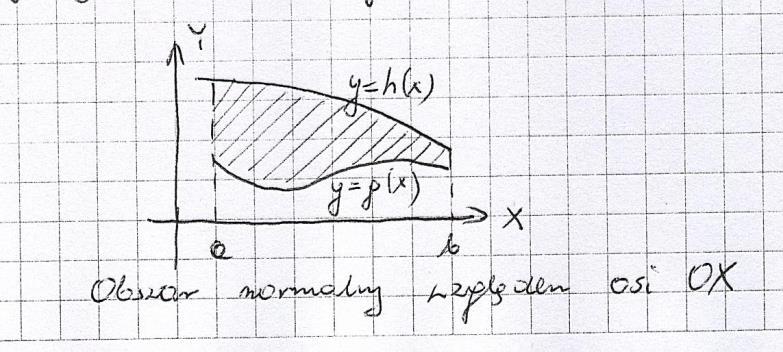 Y
y=h(x)
y=p(x)
X
a
b
Obszar normalny względem osi OX